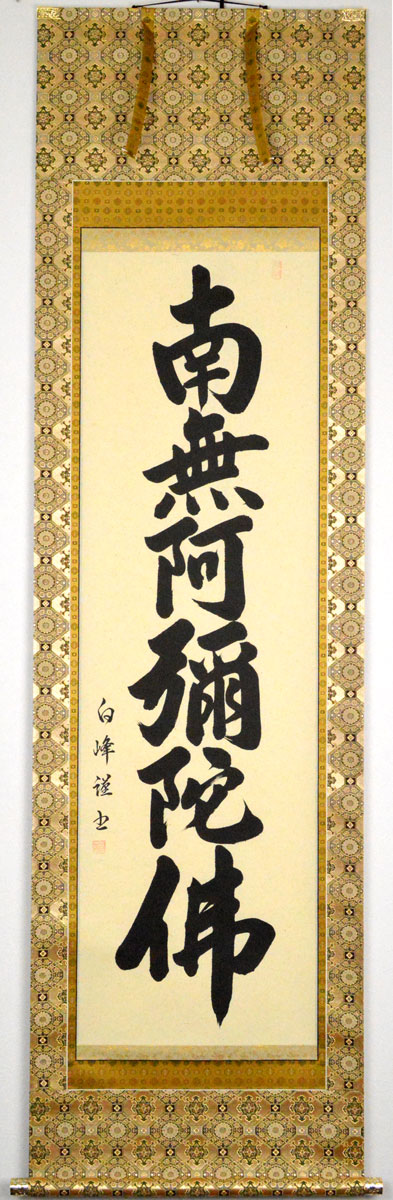 南無阿彌陀佛
白峰謹書